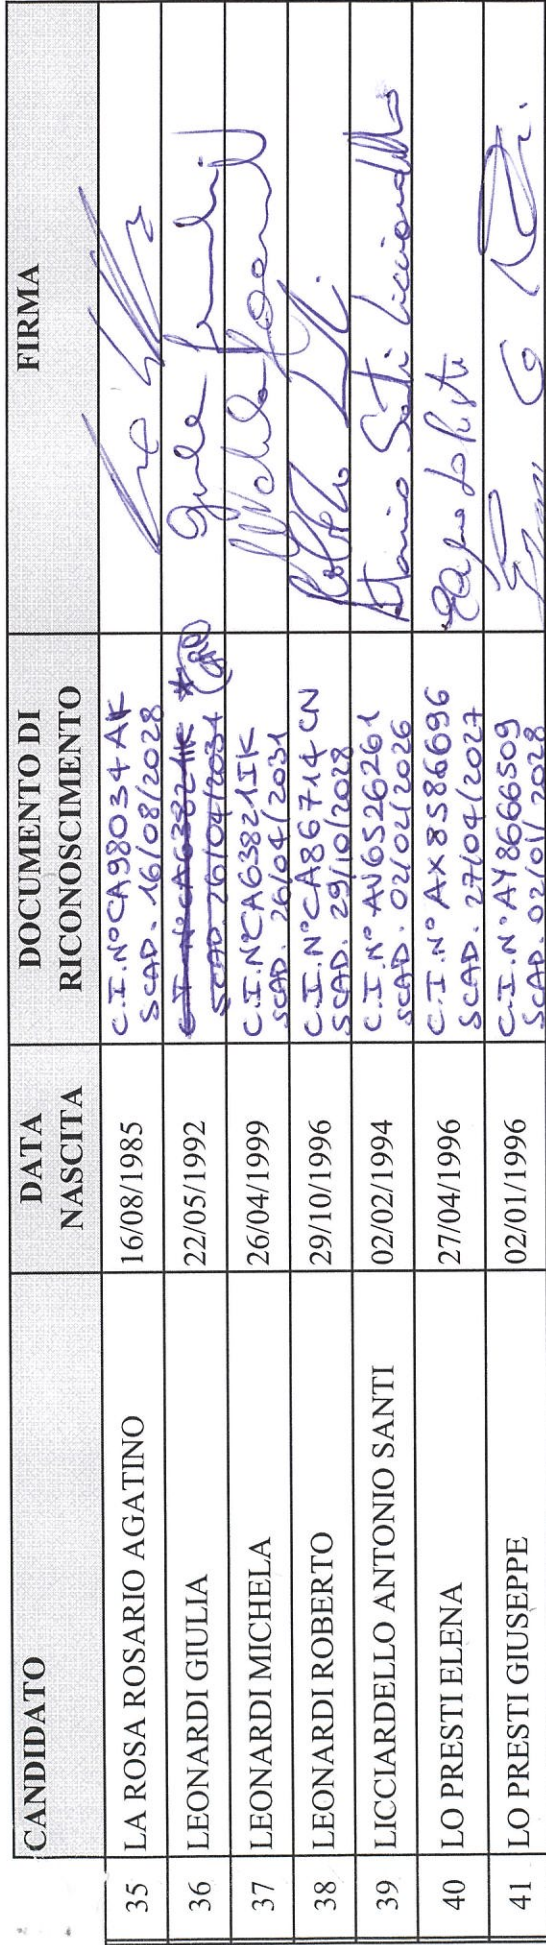 CANDIDATO DATA NASCITA DOCUMENTO DI RICONOSCIMENTO FIRMA
35 LA ROSA ROSARIO AGATINO 16/08/1985 C.I. N° CA98034AK
SCAD. 16/08/2028
36 LEONARDI GIULIA 22/05/1992 C.I. N° CA63821IK *
SCAD. 26/04/2031
Giulia
37 LEONARDI MICHELA 26/04/1999 C.I. N° CA63821IK
SCAD. 26/04/2031
Michela Leonardi
38 LEONARDI ROBERTO 29/10/1996 C.I. N° CA86714CN
SCAD. 29/10/2028
39 LICCIARDELLO ANTONIO SANTI 02/02/1994 C.I. N° AV6526261
SCAD. 02/02/2026
Antonio Santi Licciardello
40 LO PRESTI ELENA 27/04/1996 C.I. N° AX8586696
SCAD. 27/04/2027
Elena Lo Presti
41 LO PRESTI GIUSEPPE 02/01/1996 C.I. N° AY8666509
SCAD. 02/01/2028